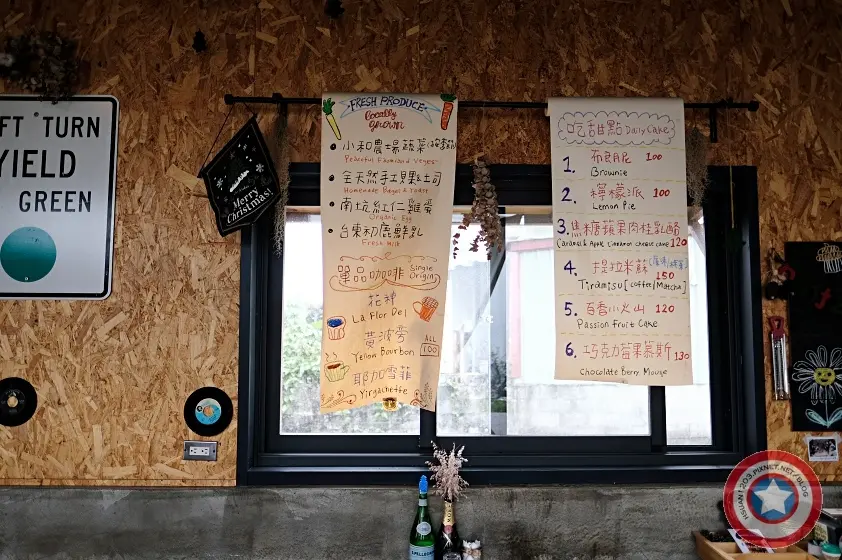 FT TURN
YIELD
GREEN
Merry
Christmas!
FRESH PRODUCE
locally
grown
小和農場蔬菜
Peaceful Farmland Veges
全天然手工貝果&土司
Homemade Bagel & Toast
南坑紅仁雞蛋
Organic Egg
台東初鹿鮮乳
Fresh Milk
單品咖啡 Single
Origin
花神
La Flor Del
黃波旁
Yellow Bourbon
ALL
100
耶加雪菲
Yirgacheffe
吃甜點 Daily Cake
1. 布朗尼 100
Brownie
2. 檸檬派 100
Lemon Pie
3. 焦糖蘋果肉桂乳酪
Caramel & Apple Cinnamon cheese cake 120
4. 提拉米蘇 150
Tiramisu [Coffee/Matcha]
5. 百香小火山 120
Passion Fruit Cake
6. 巧克力莓果慕斯 130
Chocolate Berry Mouge
HSUAN1203.PIXNET.NET/BLOG